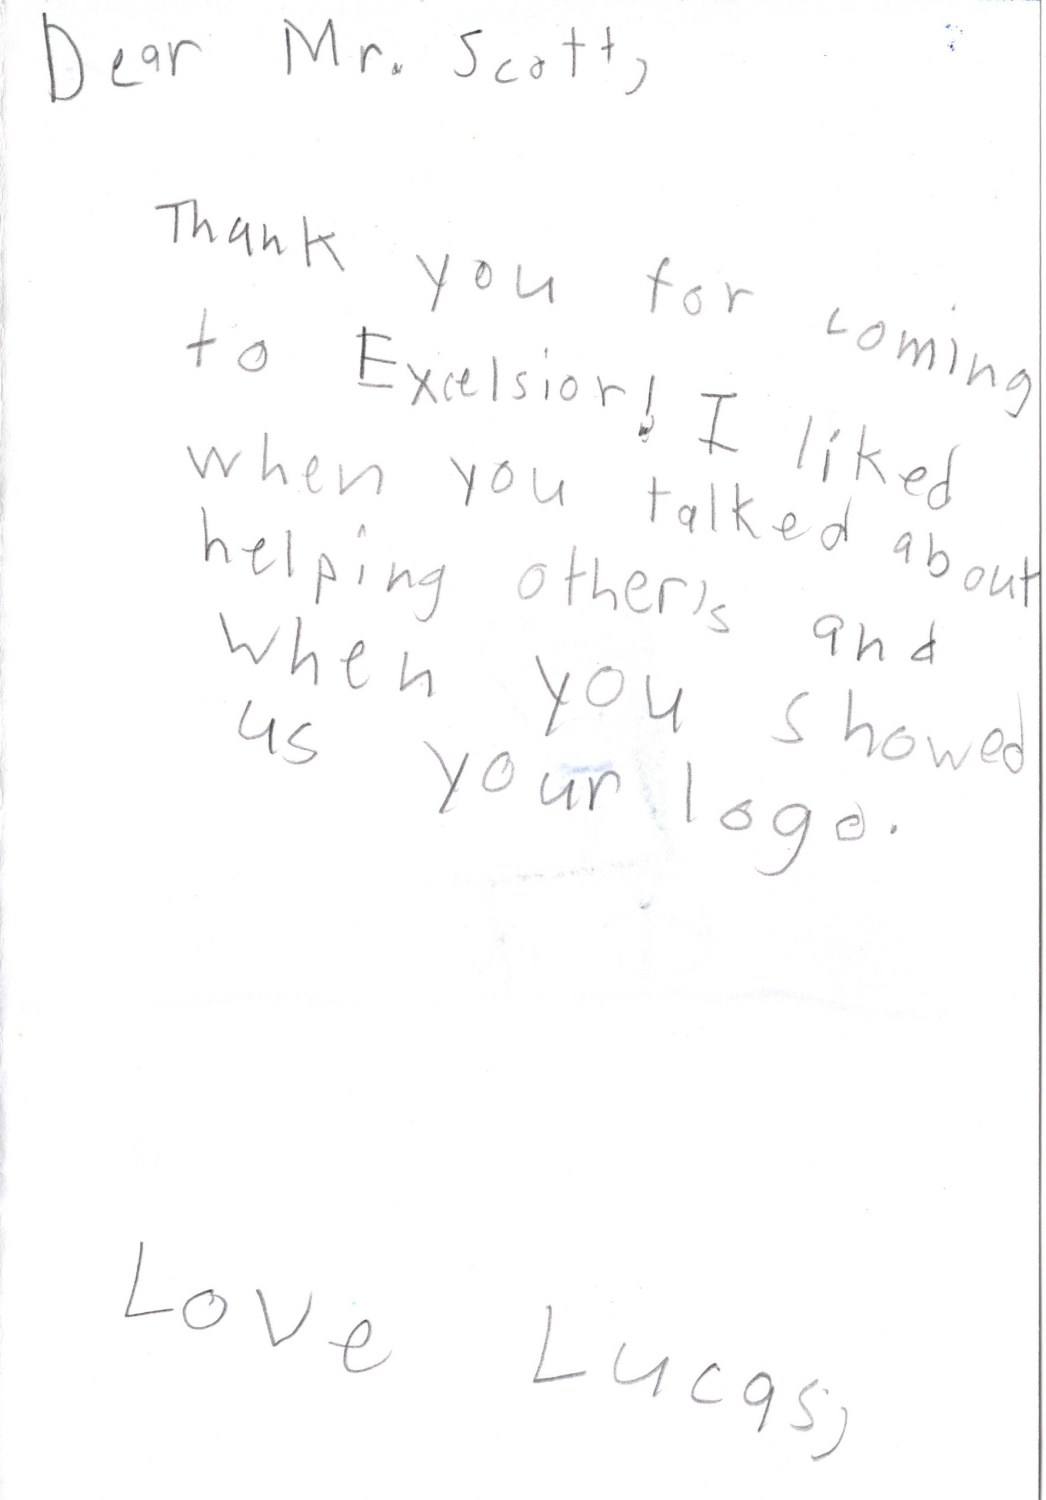 Dear Mr. Scott,
Thank you for coming
to Excelsior! I liked
when you talked about
helping other's and
when you showed
us your logo.
Love Lucas,